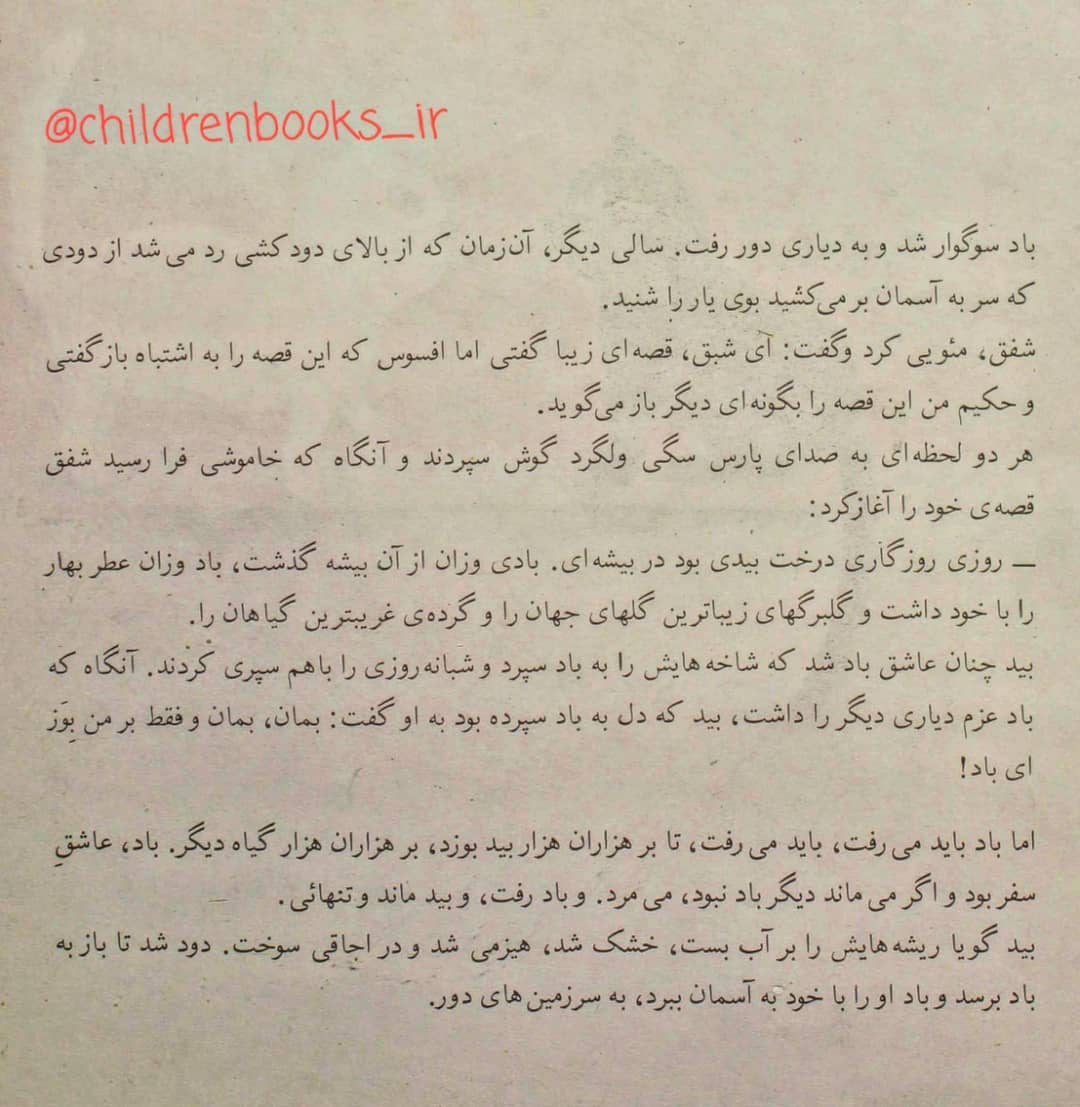 @childrenbooks_ir
باد سوگوار شد و به دیاری دور رفت. سالی دیگر، آن‌زمان که از بالای دودکشی رد می‌شد از دودی
که سر به آسمان بر می‌کشید بوی یار را شنید.
شفق، مئویی کرد وگفت: آی شبق، قصه‌ای زیبا گفتی اما افسوس که این قصه را به اشتباه بازگفتی
و حکیم من این قصه را بگونه‌ای دیگر باز می‌گوید.
هر دو لحظه‌ای به صدای پارس سگی ولگرد گوش سپردند و آنگاه که خاموشی فرا رسید شفق
قصه‌ی خود را آغازکرد:
ــ روزی روزگاری درخت بیدی بود در بیشه‌ای. بادی وزان از آن بیشه گذشت، باد وزان عطر بهار
را با خود داشت و گلبرگهای زیباترین گلهای جهان را و گرده‌ی غریبترین گیاهان را.
بید چنان عاشق باد شد که شاخه‌هایش را به باد سپرد و شبانه‌روزی را باهم سپری کردند. آنگاه که
باد عزم دیاری دیگر را داشت، بید که دل به باد سپرده بود به او گفت: بمان، بمان و فقط بر من بِوَز
ای باد!
اما باد باید می‌رفت، باید می‌رفت، تا بر هزاران هزار بید بوزد، بر هزاران هزار گیاه دیگر. باد، عاشقِ
سفر بود و اگر می‌ماند دیگر باد نبود، می‌مرد. و باد رفت، و بید ماند و تنهائی.
بید گویا ریشه‌هایش را بر آب بست، خشک شد، هیزمی شد و در اجاقی سوخت. دود شد تا باز به
باد برسد و باد او را با خود به آسمان ببرد، به سرزمین‌های دور.